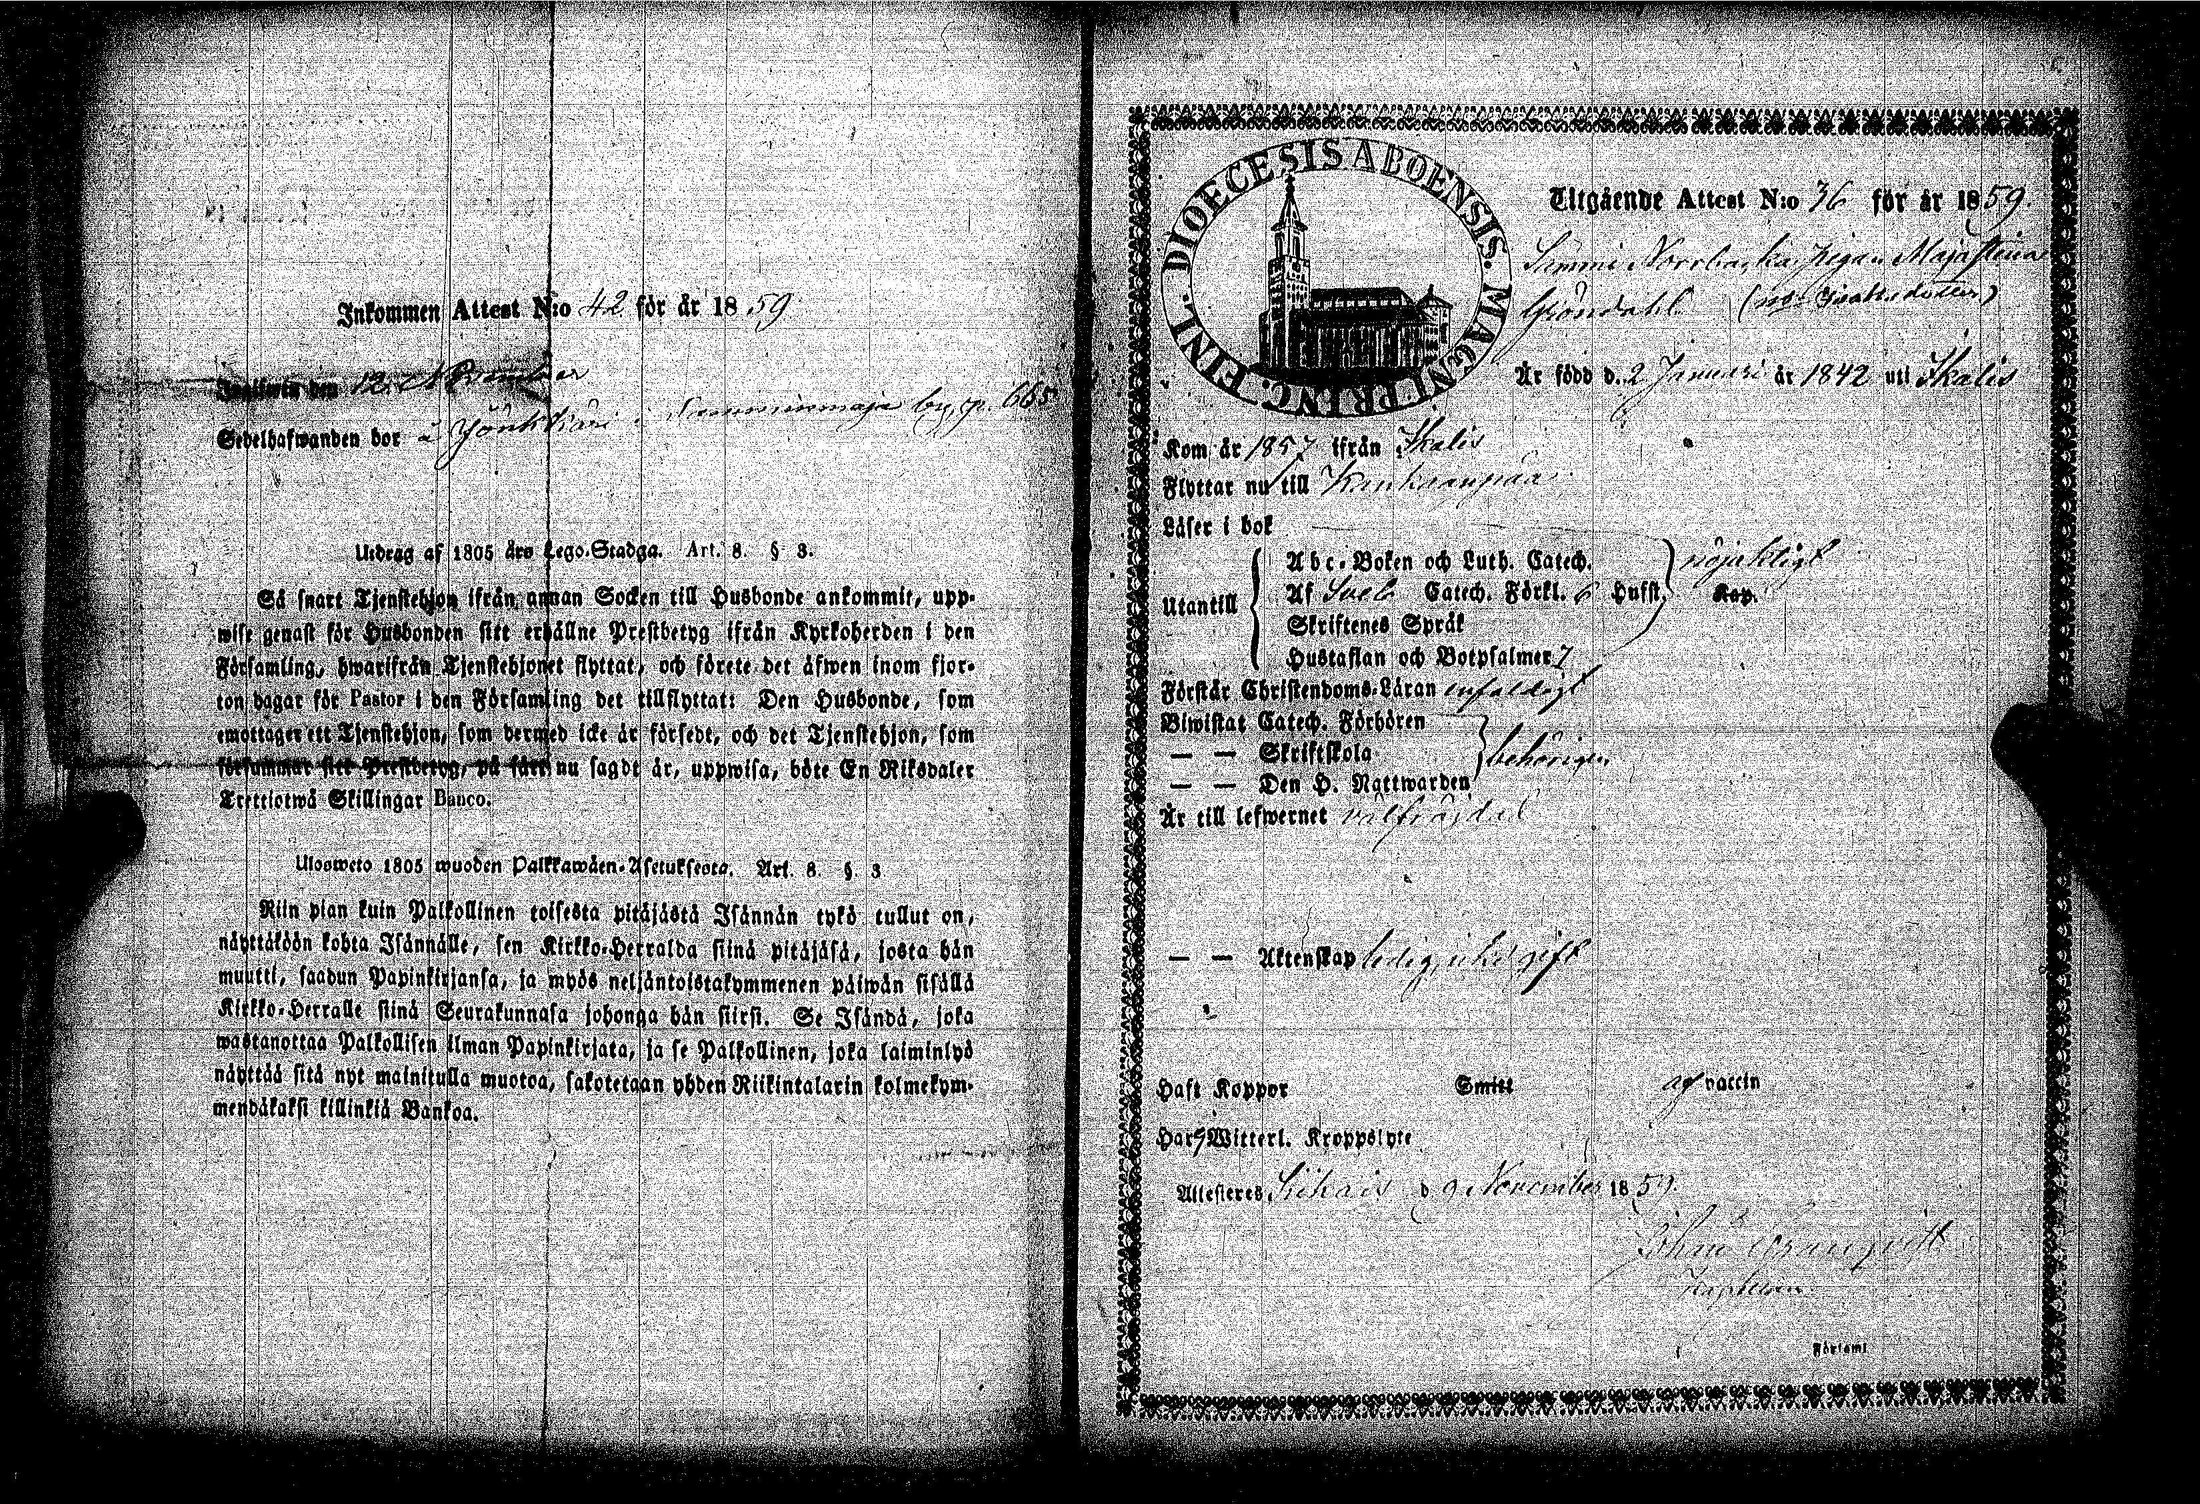 Inkommen Attest N:o 42 för år 1859
Inglifwen den 12 November
Sedelhafwanden bor å Jönkkäri i by, p. 665
Utdrag af 1805 års Lego-Stadga. Art. 8. § 3.
Så snart Tjenstehjon ifrån annan Socken till Husbonde ankommit, upp-
wise genast för Husbonden sitt erhållne Prestbetyg ifrån Kyrkoherden i den
Församling, hwarifrån Tjenstehjonet flyttat, och förete det äfwen inom fjor-
ton dagar för Pastor i den Församling det tillflyttat: Den Husbonde, som
emottager ett Tjenstehjon, som dermed icke är försedt, och det Tjenstehjon, som
försummar sitt Prestbetyg, på sätt nu sagdt är, uppwisa, böte En Riksdaler
Trettiotwå Skillingar Banco.
Ulosweto 1805 wuoden Palkkawäen-Asetuksesta. Art. 8. §. 3
Niin pian kuin Palkollinen toisesta pitäjästä Isännän tykö tullut on,
näyttäköön kohta Isännälle, sen Kirkko-Herralda siinä pitäjäsä, josta hän
muutti, saadun Papinkirjansa, ja myös neljäntoistakymmenen päiwän sisällä
Kirkko-Herralle siinä Seurakunnasa johonga hän siirsi. Se Isändä, joka
wastanottaa Palkollisen ilman Papinkirjata, ja se Palkollinen, joka laiminlyö
näyttää sitä nyt mainitulla muotoa, sakotetaan yhden Riikintalarin kolmekym-
mendäkaksi killinkiä Bankoa.
DIOECESIS ABOENSIS. MAGNI PRINC. FINL.
Utgående Attest N:o 36 för år 1859.
Norrbacka Pigan Maja Stina
Gröndahl
Är född d. 2 Januari år 1842 uti Ikalis
Kom år 1857 ifrån Ikalis
Flyttar nu till Kankaanpää
Läser i bok
Utantill
Abc-Boken och Luth. Catech.
Af Sveb Catech. Förkl. 6 Hufst. Kap.
Skriftenes Språk
Hustaflan och Botpsalmer 7
nöjaktigt
Förstår Christendoms-Läran enfaldigt
Biwistat Catech. Förhören
— — Skriftskola
— — Den H. Nattwarden
behörigen
Är till lefwernet välfräjdad
— — Äktenskap ledig, icke gift
Haft Koppor Smitt af vaccin
Har Witterl. Kroppslyte
Attesteres Sikais d 9 November 1859.
Kaplan
Förseml